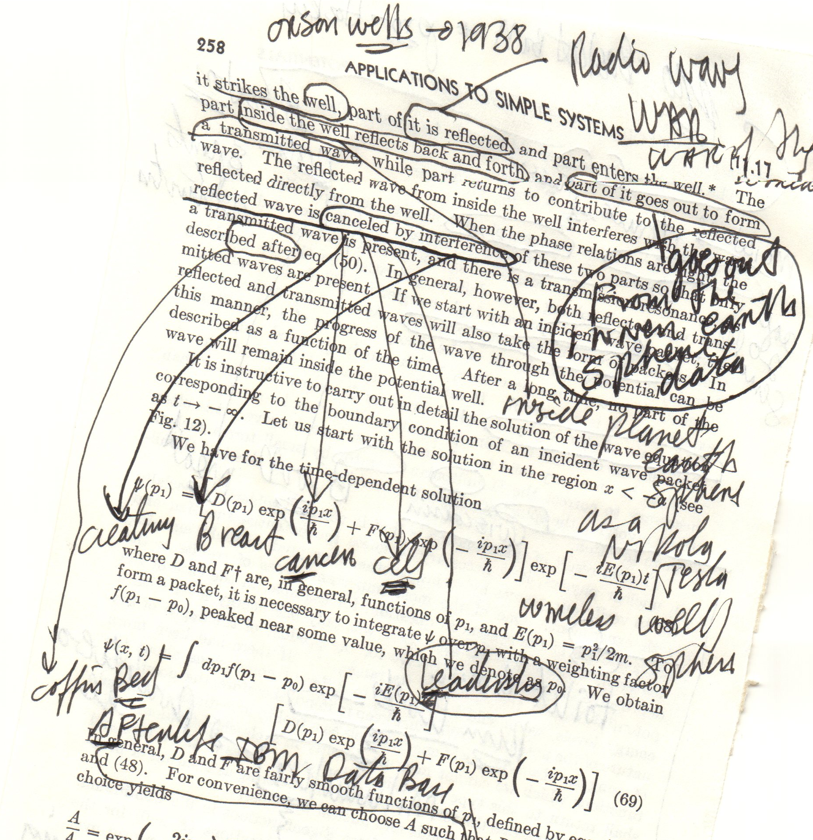 orson wells → 1938
258
Radio wave
APPLICATIONS TO SIMPLE SYSTEMS
WAR
WAR of the
11.17
it strikes the well, part of it is reflected, and part enters the well.* The
part inside the well reflects back and forth, and part of it goes out to form
a transmitted wave, while part returns to contribute to the reflected
wave. The reflected wave from inside the well interferes with the wave
reflected directly from the well. When the phase relations are right, the
reflected wave is canceled by interference of these two parts so that only
a transmitted wave is present, and there is a transmission resonance, as
described after eq. (50). In general, however, both reflected and trans-
mitted waves are present. If we start with an incident wave packet, the
reflected and transmitted waves will also take the form of packets. In
this manner, the progress of the wave through the potential can be
described as a function of the time. After a long time, no part of the
wave will remain inside the potential well.
goes out
From The
earth
inner
sphere
data
inside planet
earth
sphere
It is instructive to carry out in detail the solution of the wave equation
corresponding to the boundary condition of an incident wave packet
as t → − ∞. Let us start with the solution in the region x < −a (see
Fig. 12).
We have for the time-dependent solution
as a
Nikola
Tesla
wireless
sphere
ψ(p₁) = [D(p₁) exp (ip₁x/ℏ) + F(p₁) exp (− ip₁x/ℏ)] exp [− iE(p₁)t/ℏ]
creating Breast cancer cell
where D and F† are, in general, functions of p₁, and E(p₁) = p₁²/2m. To
form a packet, it is necessary to integrate ψ over p₁ with a weighting factor
f(p₁ − p₀), peaked near some value, which we denote as p₀. We obtain
ψ(x, t) = ∫ dp₁f(p₁ − p₀) exp [− iE(p₁)
coffin Bed
[D(p₁) exp (ip₁x/ℏ) + F(p₁) exp (− ip₁x/ℏ)] (69)
Afterlife IBM Data Base
In general, D and F are fairly smooth functions of p₁, defined by
and (48). For convenience, we can choose A such that
choice yields
A
= exp